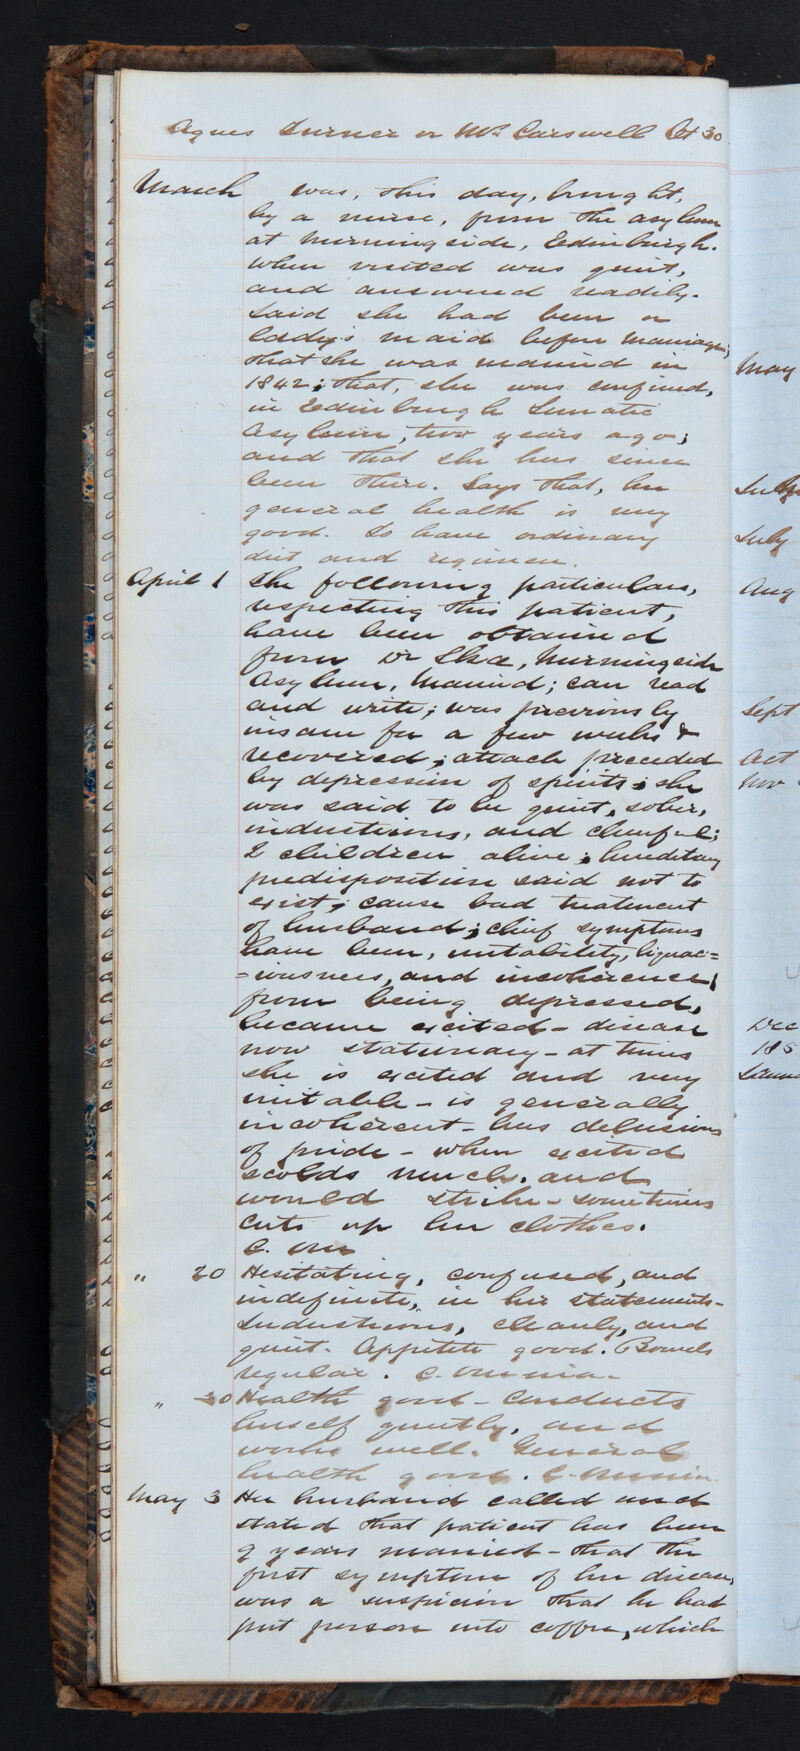 Agnes Turner or Mrs Carswell Æt 30
March was, this day, brought,
by a nurse, from the asylum
at Morningside, Edinburgh.
When visited was quiet,
and answered readily.
Said she had been a
lady's maid before marriage;
that she was married in
1842; that, she was confined,
in Edinburgh Lunatic
Asylum, two years ago;
and that she has since
been there. Says that, her
general health is very
good. To have ordinary
diet and regimen.
April 1 The following particulars,
respecting this patient,
have been obtained
from Dr Skae, Morningside
Asylum. Married; can read
and write; was previously
insane for a few weeks &
recovered; attack preceded
by depression of spirits; she
was said to be quiet, sober,
industrious, and cheerful;
2 children alive; hereditary
predisposition said not to
exist; cause bad treatment
of husband; chief symptoms
have been, irritability, liquac=
=iousness, and incoherence;
from being depressed,
became excited - disease
now stationary - at times
she is excited and very
irritable - is generally
incoherent - has delusions
of pride - when excited
scolds much, and
would strike - sometimes
cuts up her clothes.
C. Om
" 20 Hesitating, confused, and
indefinite, in her statements -
Industrious, cleanly, and
quiet. Appetite good. Bowels
regular. C. omnia.
" 30 Health good - Conducts
herself quietly, and
works well. General
health good. C. omnia.
May 3 Her husband called and
stated that patient has been
9 years married - that the
first symptom of her disease,
was a suspicion that he had
put poison into coffee, which
May
July
July
Aug
Sept
Oct
Nov
Dec
185